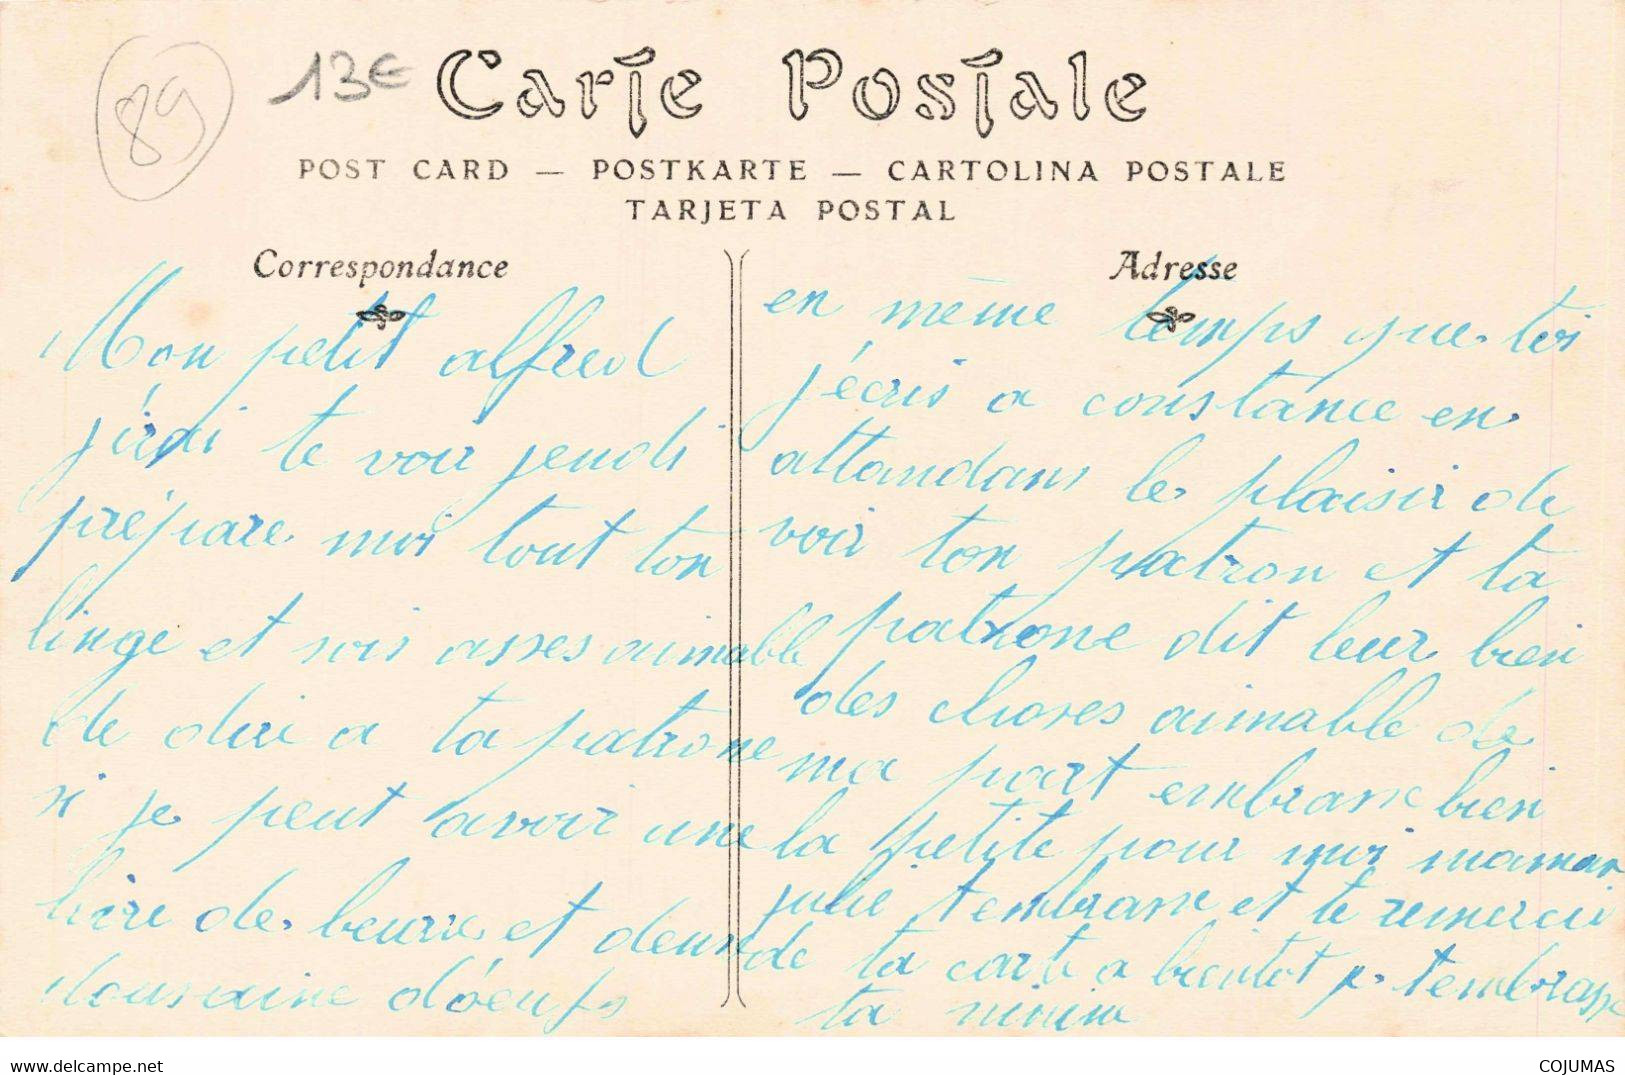 89
13€
Carte Postale
POST CARD — POSTKARTE — CARTOLINA POSTALE
TARJETA POSTAL
Correspondance
Mon petit alfred
j'irai te voir jeudi
prépare moi tout ton
linge et sois asses aimable
de dire a ta patrone
si je peut avoir une
livre de beurre et deux
dousaine d'oeufs
Adresse
en même temps que toi
j'écris a constance en
attandans le plaisir de
voir ton patron et ta
patrone dit leur bien
des choses aimable de
ma part embrasse bien
la petite pour moi maman
julie t'embrasse et te remercie
de ta carte a bientot je t'embrasse
ta ninine
delcampe.net
COJUMAS